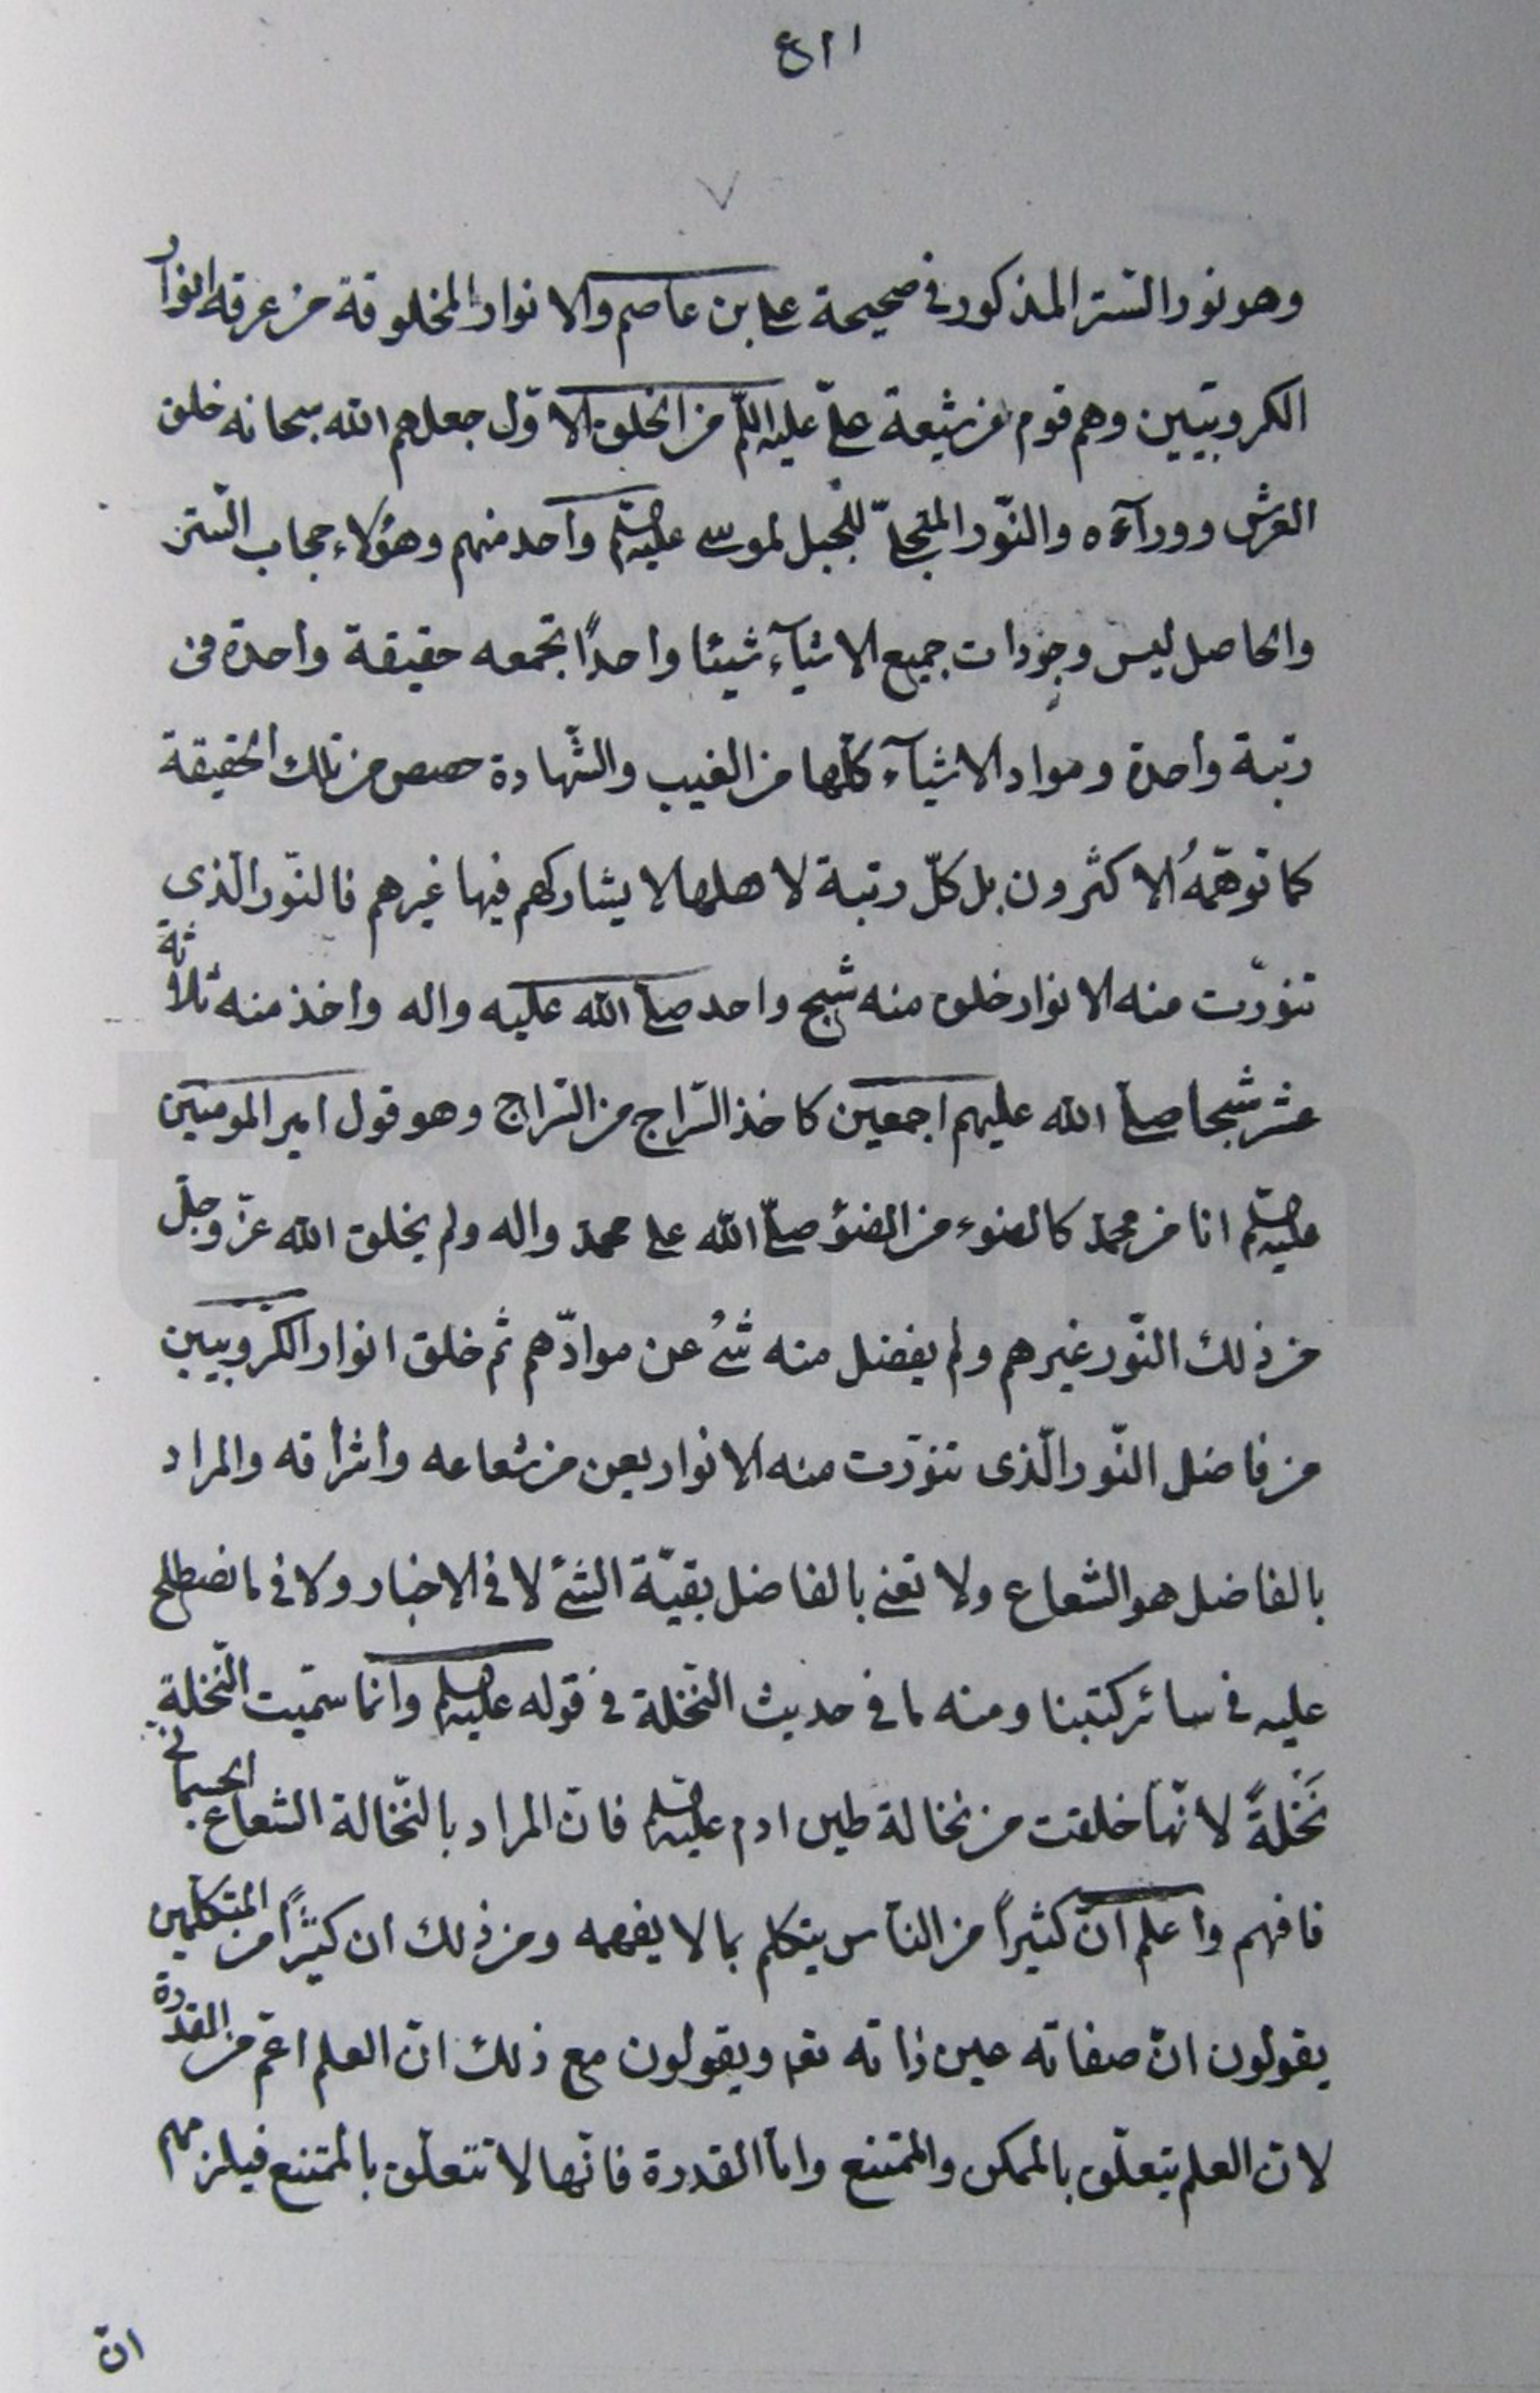 وهو نور الستر المذكور فى صحيحة على بن عاصم والانوار المخلوقة من عرقه انوار
الكروبيّين وهم قوم من شيعة علىّ عليه السلام من الخلق الاوّل جعلهم الله سبحانه خلف
العرش ووراۤءه والنّور المتجلّى للجبل لموسى عليه السلم واحد منهم وهؤلاء حجاب السّتر
والحاصل ليس وجودات جميع الاشيآء شيئا واحدًا تجمعه حقيقة واحدة فى
رتبة واحدة ومواد الاشيآء كلّها من الغيب والشّهادة حصص من تلك الحقيقة
كما توهّمهُ الاكثرون بل كلّ رتبة لاهلها لا يشاركهم فيها غيرهم فالنّور الّذى
تنوّرت منه الانوار خلق منه شبح واحد صلى الله عليه واله واخذ منه ثلاثة
عشر شبحا صلى الله عليهم اجمعين كاخذ السّراج من السّراج وهو قول امير المومنين
عليه السلم انا من محمد كالضوء من الضوء صلّى الله على محمد واله ولم يخلق الله عزّ وجلّ
من ذلك النّور غيرهم ولم يفضل منه شىُ عن موادّهم ثم خلق انوار الكرّوبيين
من فاضل النّور الّذى تنوّرت منه الانوار يعنى من شعاعه واشراقه والمراد
بالفاضل هو الشعاع ولا نعنى بالفاضل بقيّة الشئ لا فى الاخبار ولا فى ما نصطلح
عليه فى سائر كتبنا ومنه ما فى حديث النّخلة فى قوله عليه السلم وانّما سمّيت النّخلةِ
نَخْلةً لانّها خلقت من نخالة طين ادم عليه السلم فانّ المراد بالنّخالة الشعاع الجسمانى
فافهم واعلم انّ كثيراً من النّاس يتكلم بما لا يفهمه ومن ذلك ان كثيرًا من المتكلّمين
يقولون انّ صفاته عين ذاته تعـ ويقولون مع ذلك انّ العلم اعمّ من القدرة
لانّ العلم يتعلّق بالممكن والممتنع وامّا القدرة فانّها لا تتعلّق بالممتنع فيلزمهم
انّ